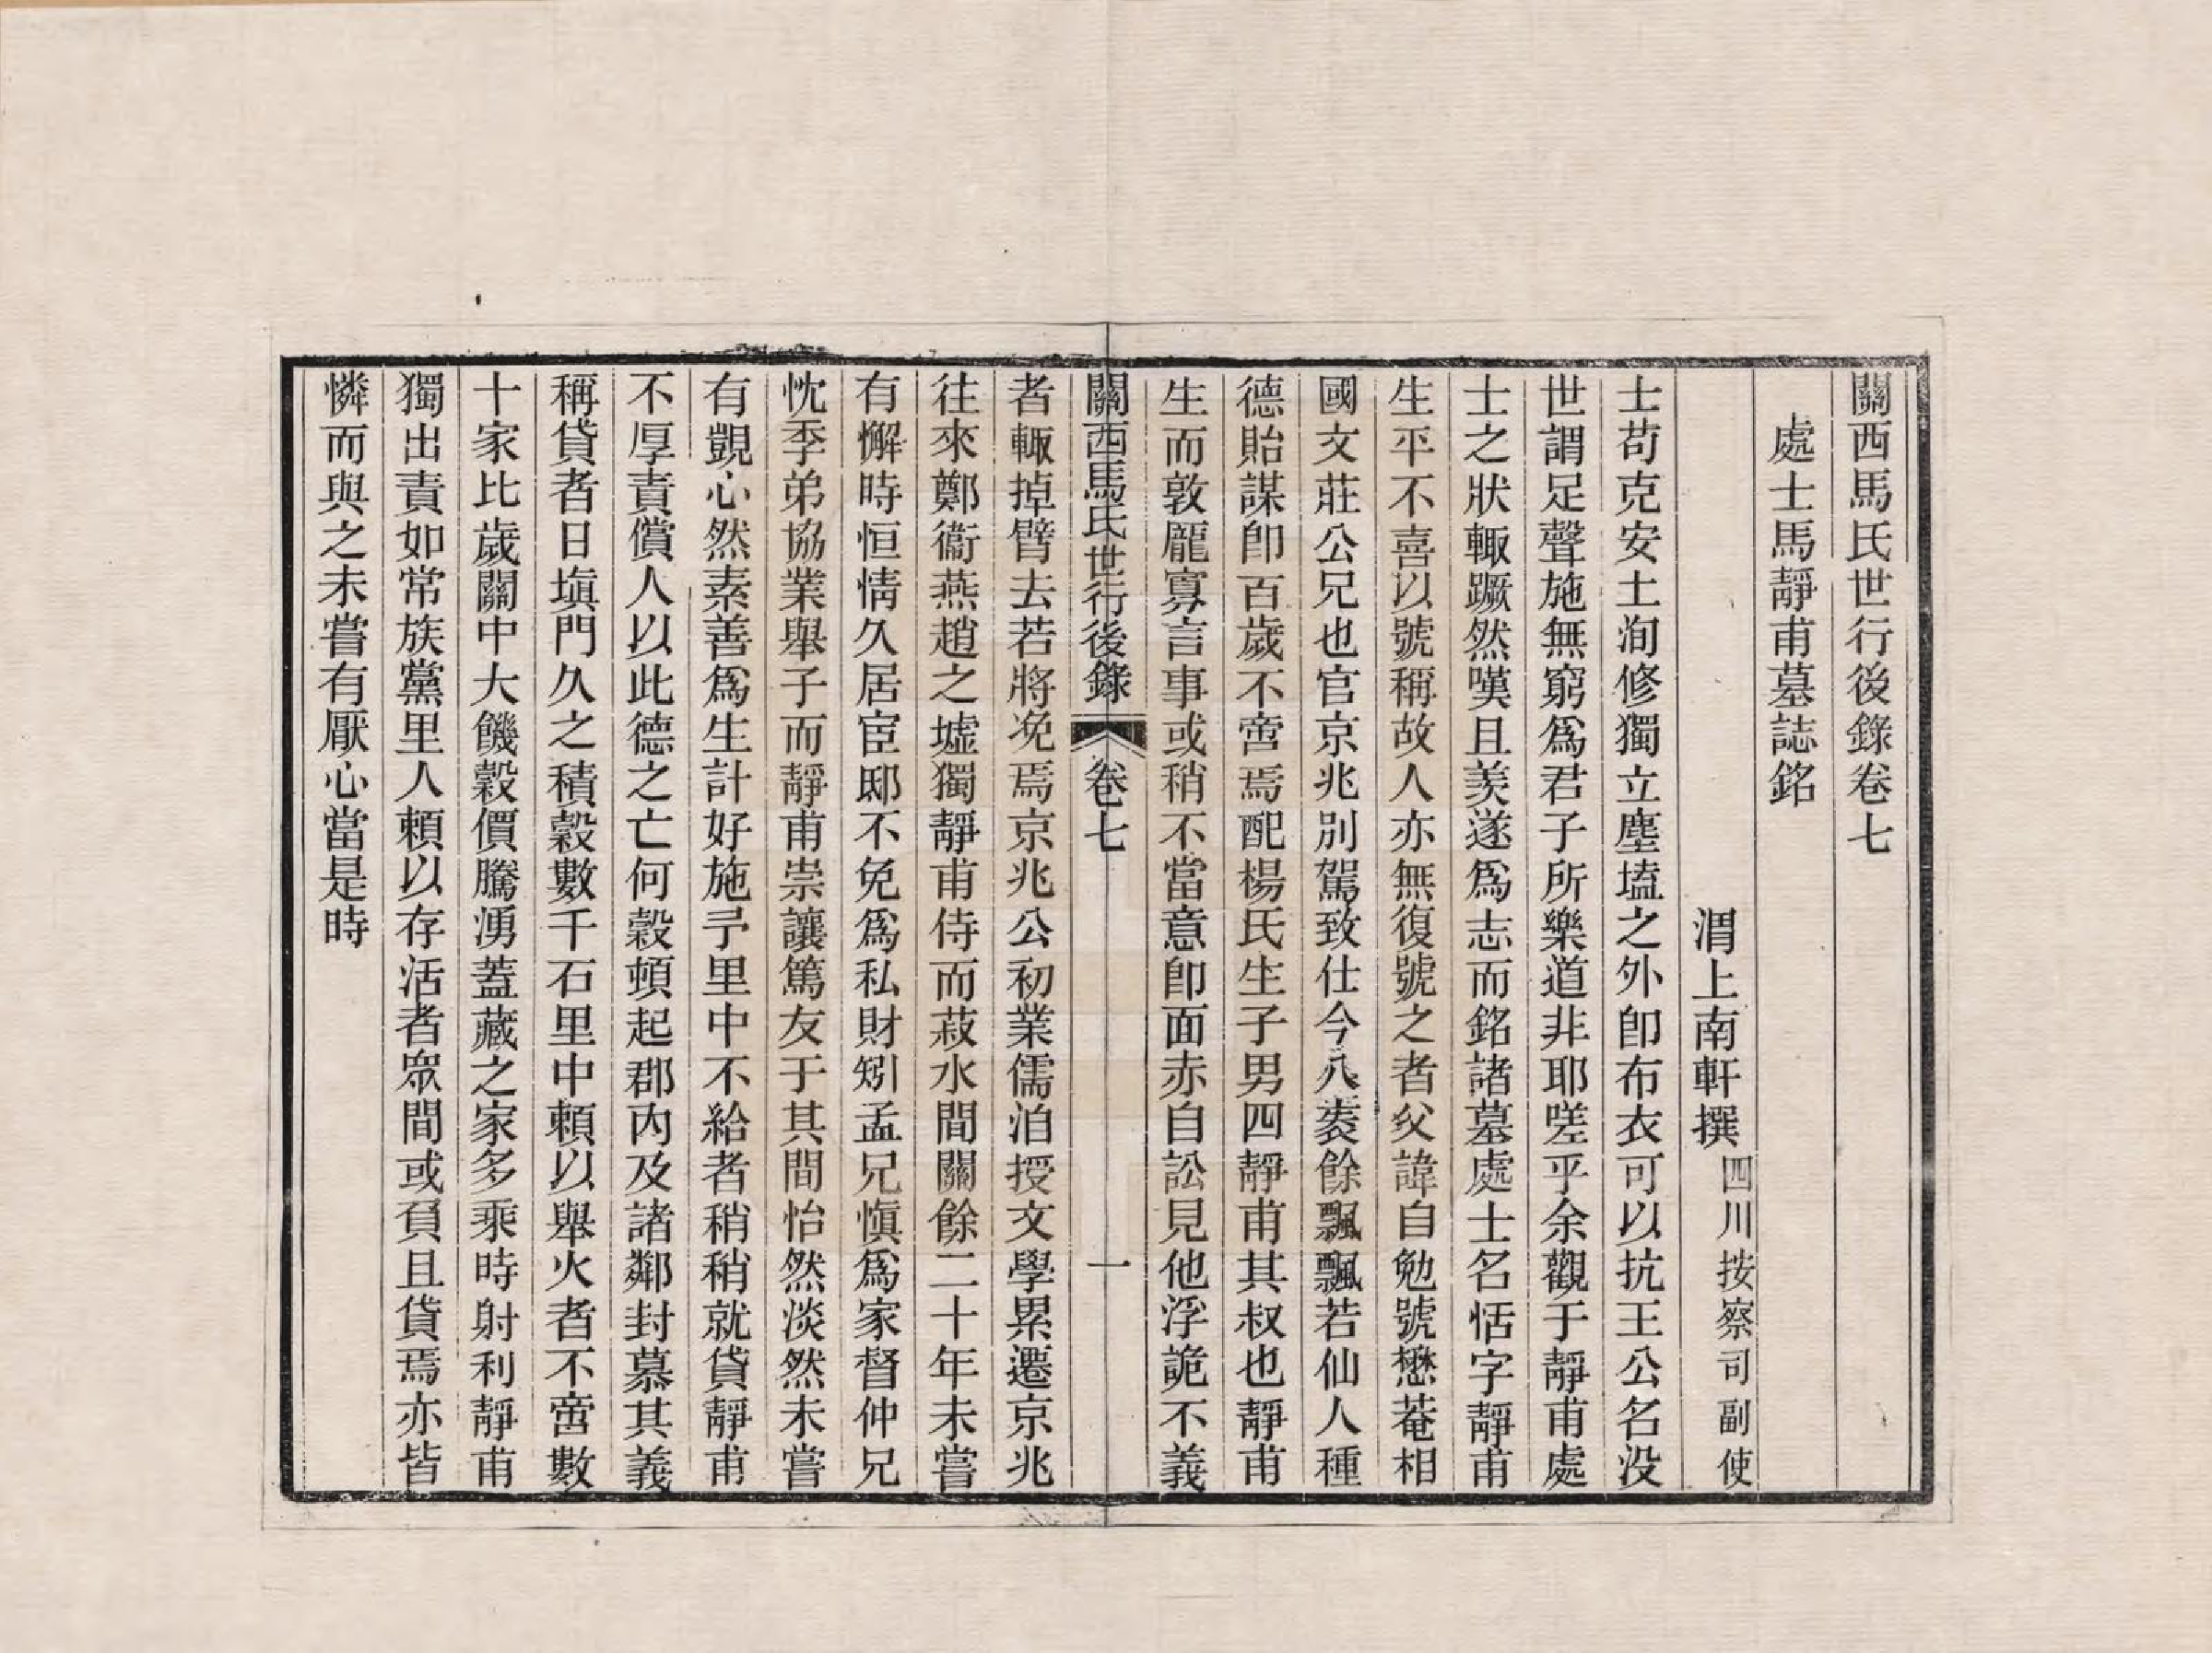 關西馬氏世行後錄卷七
處士馬靜甫墓誌銘
渭上南軒撰四川按察司副使
士苟克安土洵修獨立塵壒之外卽布衣可以抗王公名没
世謂足聲施無窮爲君子所樂道非耶嗟乎余觀于靜甫處
士之狀輙蹶然嘆且羡遂爲志而銘諸墓處士名恬字靜甫
生平不喜以號稱故人亦無復號之者父諱自勉號懋菴相
國文莊公兄也官京兆別駕致仕今八袠餘飄飄若仙人種
德貽謀卽百歲不啻焉配楊氏生子男四靜甫其叔也靜甫
生而敦龎寡言事或稍不當意卽面赤自訟見他浮詭不義
關西馬氏世行後錄
卷七
一
者輙掉臂去若將浼焉京兆公初業儒洎授文學累遷京兆
往來鄭衞燕趙之墟獨靜甫侍而菽水間關餘二十年未嘗
有懈時恒情久居宦邸不免爲私財矧孟兄愼爲家督仲兄
忱季弟協業舉子而靜甫崇讓篤友于其間怡然淡然未嘗
有覬心然素善爲生計好施予里中不給者稍稍就貸靜甫
不厚責償人以此德之亡何穀頓起郡內及諸鄰封慕其義
稱貸者日塡門久之積穀數千石里中頼以舉火者不啻數
十家比歲關中大饑穀價騰湧蓋藏之家多乘時射利靜甫
獨出責如常族黨里人頼以存活者眾間或負且貸焉亦皆
憐而與之未嘗有厭心當是時